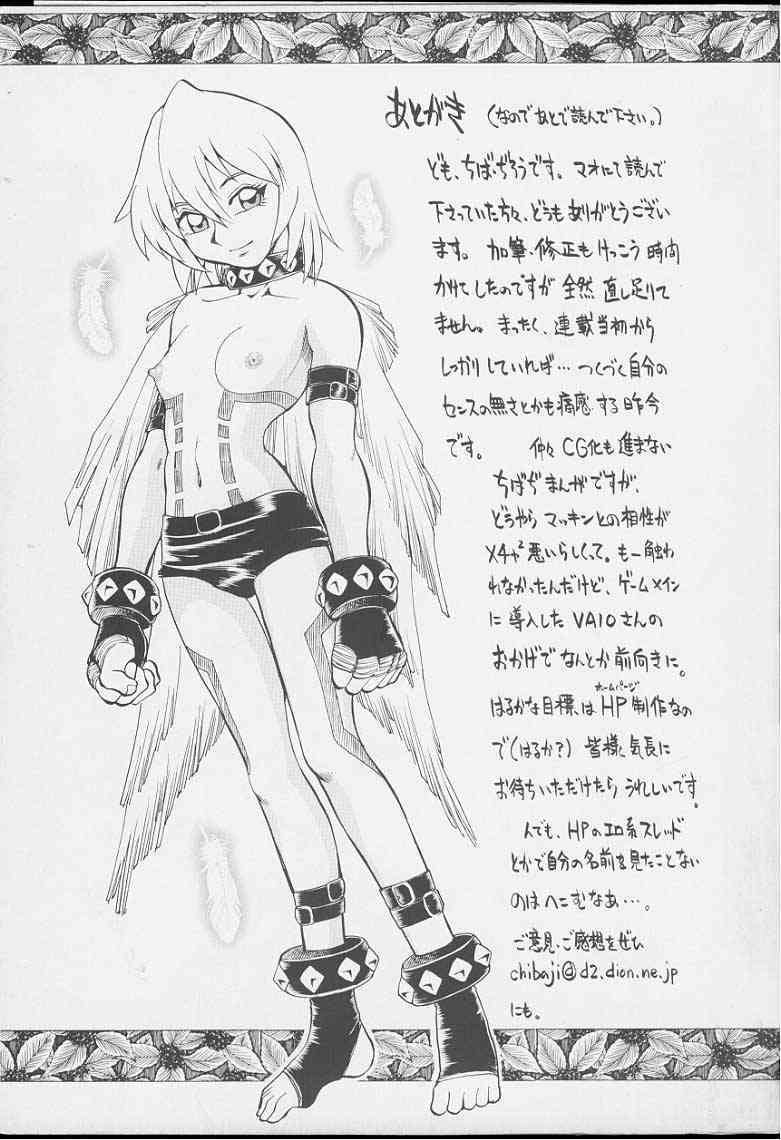 あとがき (なのであとで読んで下さい。)
ども、ちば・ぢろうです。マオにて読んで
下さっていた方々、どうもありがとうござい
ます。加筆・修正もけっこう時間
かけてしたのですが全然直し足りて
ません。まったく、連載当初から
しっかりしていれば…つくづく自分の
センスの無さとかも痛感する昨今
です。 仲々CG化も進まない
ちばぢまんがですが、
どうやらマッキンとの相性が
メチャ²悪いらしくって。も一触わ
れなかったんだけど、ゲームメイン
に導入したVAIOさんの
おかげでなんとか前向きに。
ホームページ
はるかな目標はHP制作なの
で(はるか?)皆様、気長に
お待ちいただけたらうれしいです。
んでも、HPのエロ系スレッド
とかで自分の名前を見たことない
のはへこむなあ…。
ご意見・ご感想をぜひ
chibaji@d2.dion.ne.jp
にも。